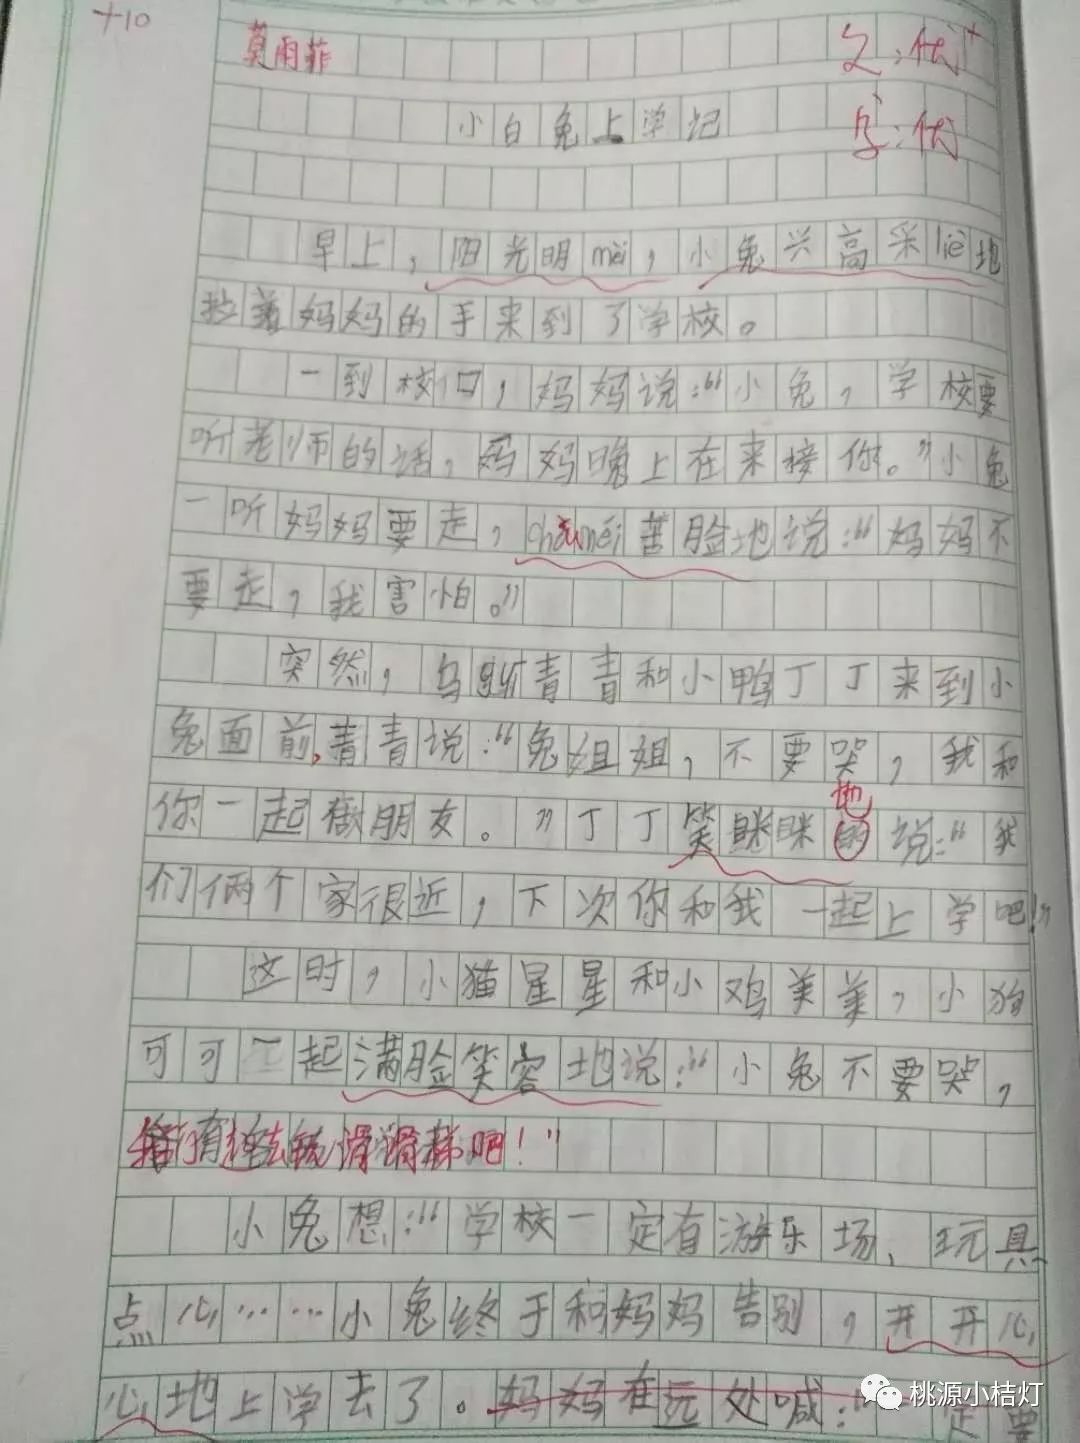 +10
莫雨菲
文:优+
小白兔上学记
字:优
早上,阳光明mèi,小兔兴高采liè地
拉着妈妈的手来到了学校。
一到校门口,妈妈说:“小兔,学校要
听老师的话,妈妈晚上在来接你。”小兔
一听妈妈要走,chóuméi苦脸地说:“妈妈不
要走,我害怕。”
突然,乌guī青青和小鸭丁丁来到小
兔面前,青青说:“兔姐姐,不要哭,我和
地
你一起做朋友。”丁丁笑眯眯的说:“我
们俩个家很近,下次你和我一起上学吧!”
这时,小猫星星和小鸡美美,小狗
可可一起满脸笑容地说:“小兔不要哭,
去玩滑滑梯吧!”
小兔想:“学校一定有游乐场、玩具、
点心……小兔终于和妈妈告别,开开心
心地上学去了。妈妈在远处喊:“一定要
桃源小桔灯